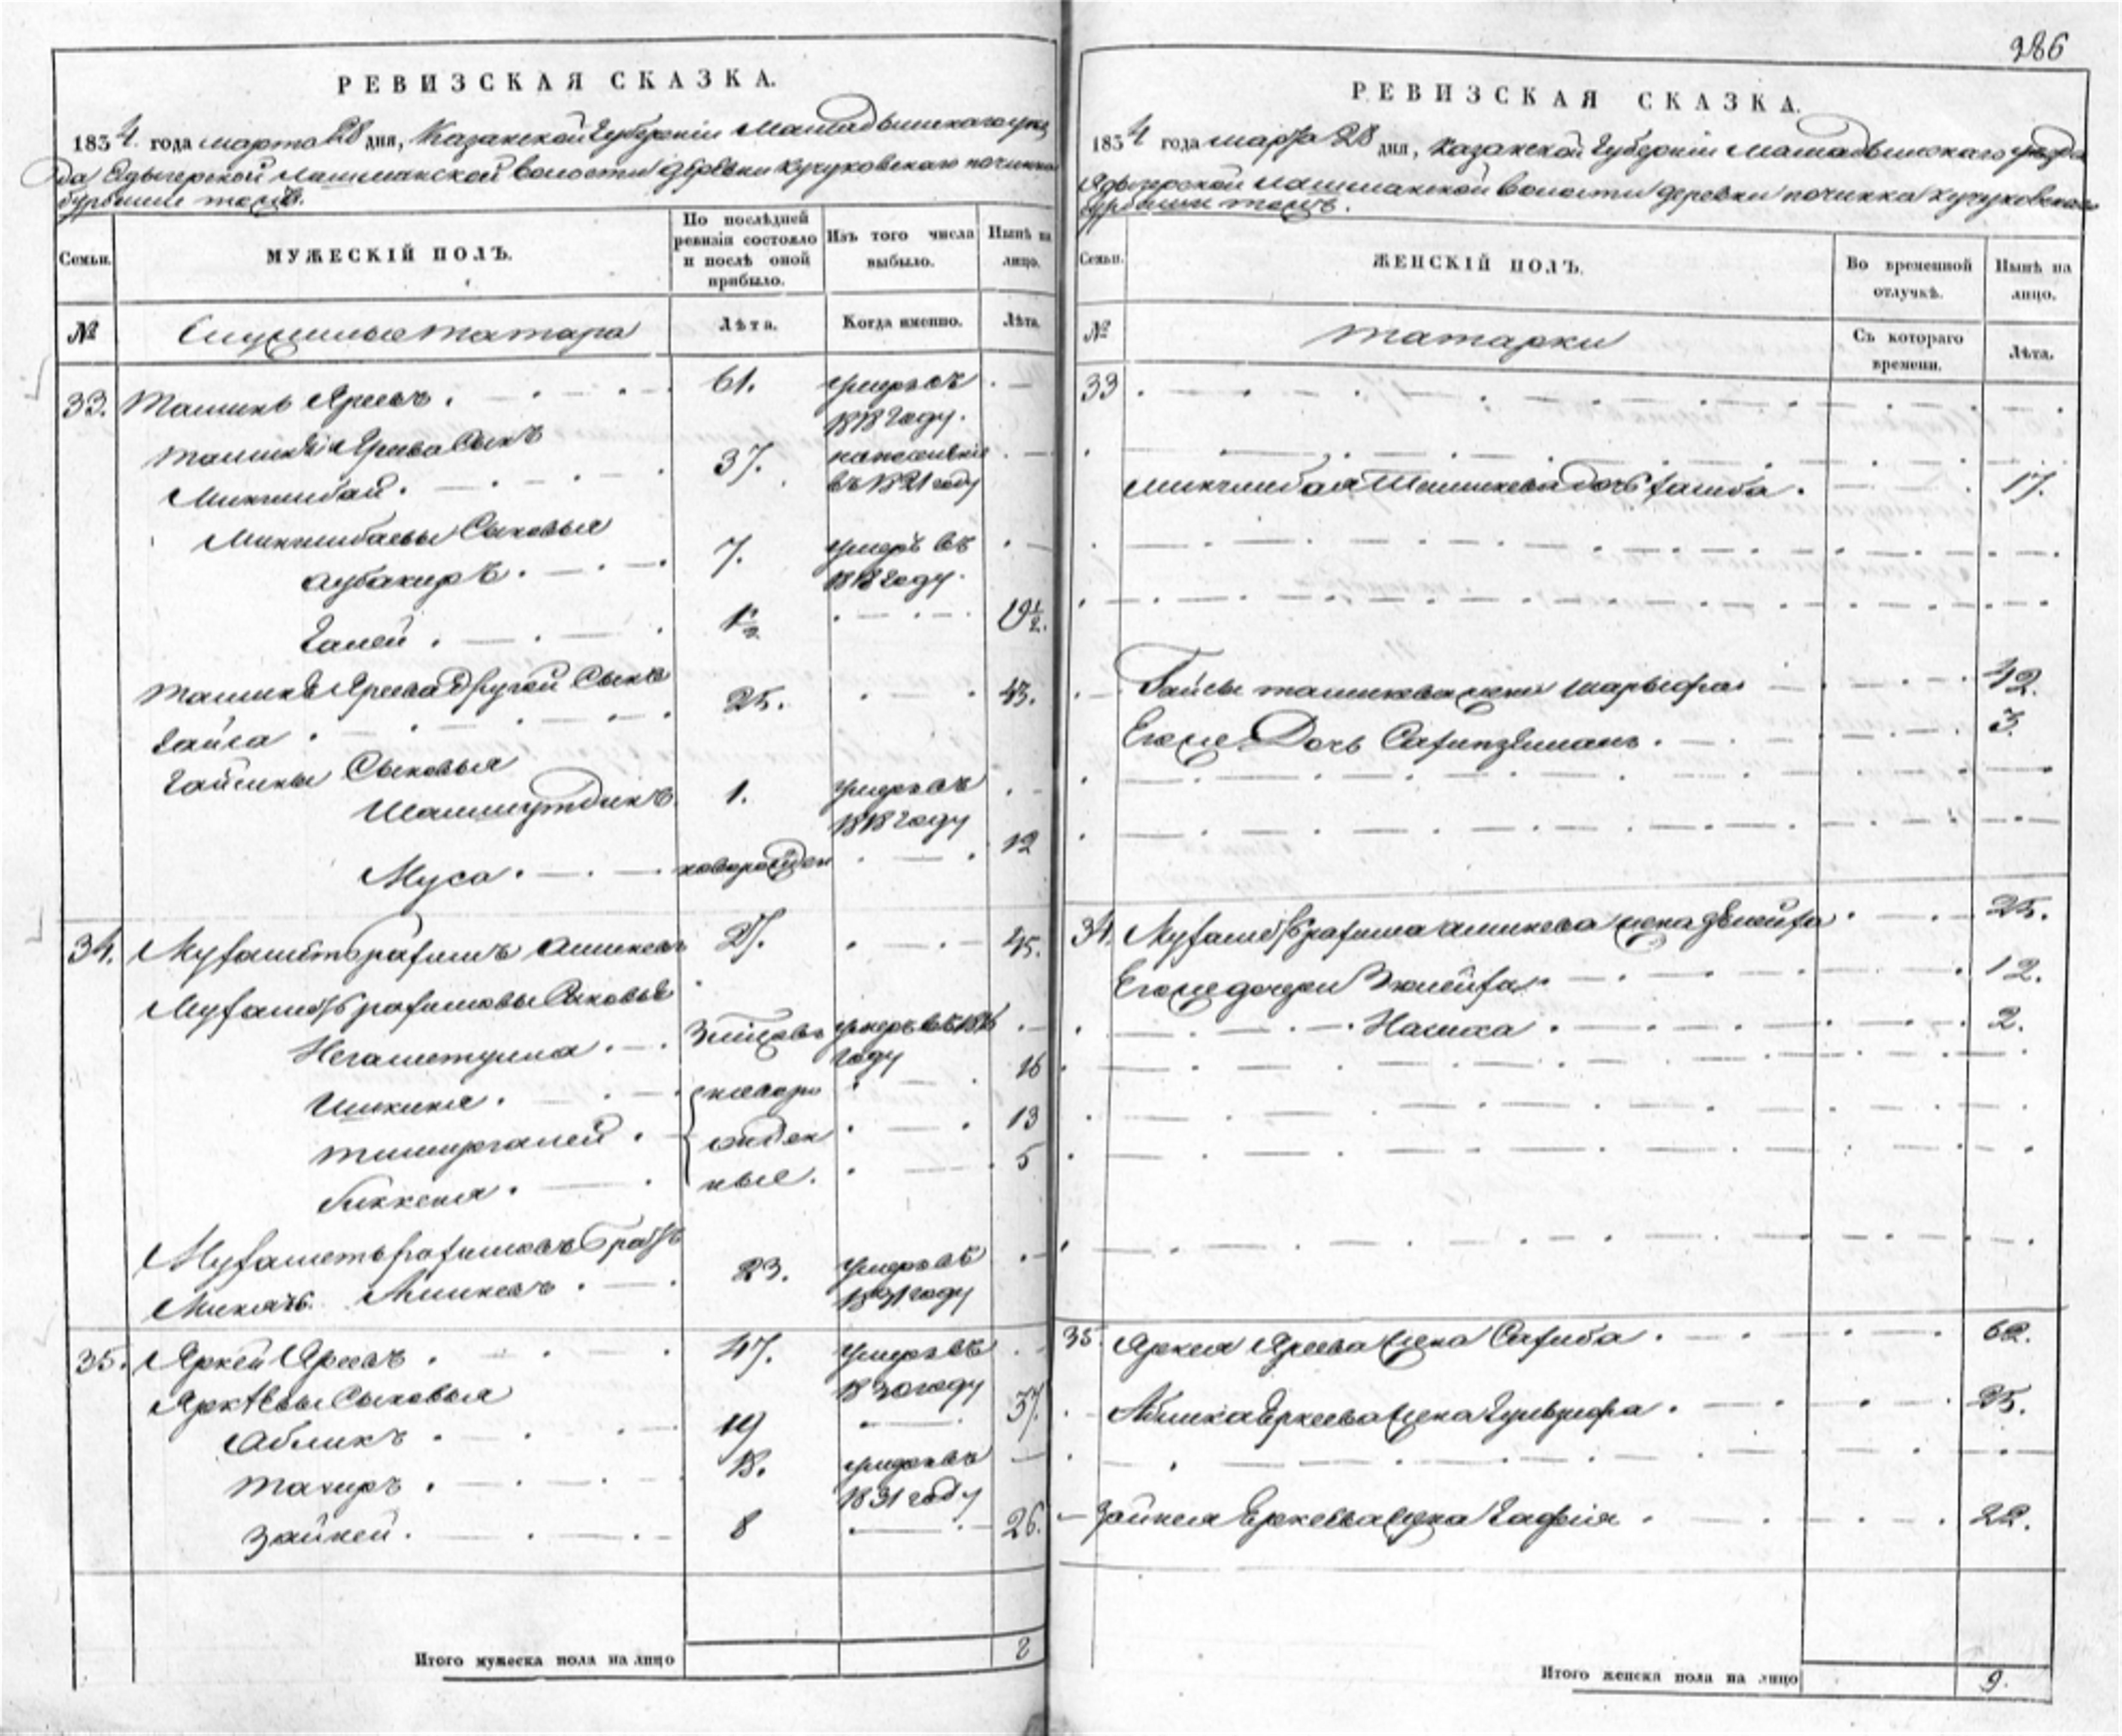 РЕВИЗСКАЯ СКАЗКА.
1834. года марта 28 дня, Казанской Губернии Мамадышскаго уез
да Ядыгерской лашманской волости деревни кучуковскаго починка
бурбаши тожъ.
Семьи.
МУЖЕСКІЙ ПОЛЪ.
По послѣдней ревизіи состояло и послѣ оной прибыло.
Изъ того числа выбыло.
Нынѣ на лицо.
№
Служилые татара
Лѣта.
Когда именно.
Лѣта.
33. Ташикъ Яреевъ . 61. умеръ въ
1818 году.
Ташика Яреева Сынъ
Микчибай. 37. въ 1821 году
Микчибаевы Сыновья
аубакиръ. 7. умеръ въ
1818 году.
Галей . 1½ 19½.
Ташика Яреева другой Сынъ
Гайса . 25. 43.
Гайсины Сыновья
Шамшутдинъ 1. умеръ въ
1818 году
Муса . новорожден 12
34. Ибрагимъ 27. 45.
Ибрагимовы Сыновья
Негаметулла . умеръ въ 1816
году
новоро 16
Тимиргалей . жден 13
Биккеня . ные. 5
Братъ
23. умеръ въ
1831 году
35. Яркей Яреевъ . 47. умеръ въ
1830 году
Яркѣевы Сыновья
Абликъ . 19 37.
Тагиръ . 18. умеръ въ
1831 году
Зайней . 8 26.
Итого мужеска пола на лицо 8
386
РЕВИЗСКАЯ СКАЗКА.
1834 года марта 28 дня, Казанской Губерніи Мамадышскаго уезда
Ядыгерской лашманской волости деревни починка кучуковскаго
бурбаши тожъ.
Семьи.
ЖЕНСКІЙ ПОЛЪ.
Во временной отлучкѣ.
Нынѣ на лицо.
№
татарки
Съ котораго времени.
Лѣта.
33
Микчибая Ташикева дочь 17.
Гайсы ташикева жена шарыфа 42.
Его же Дочь Сафизямалъ . 3.
34. Ибрагима жена 25.
Его же дочери Зюлейха 12.
Насиха 2.
35. Яркея Яреева жена Сагиба . 62.
Аблика Еркеева жена Гульзюфа . 35.
Зайнея Еркеева жена Гафія . 22.
Итого женска пола на лицо 9.